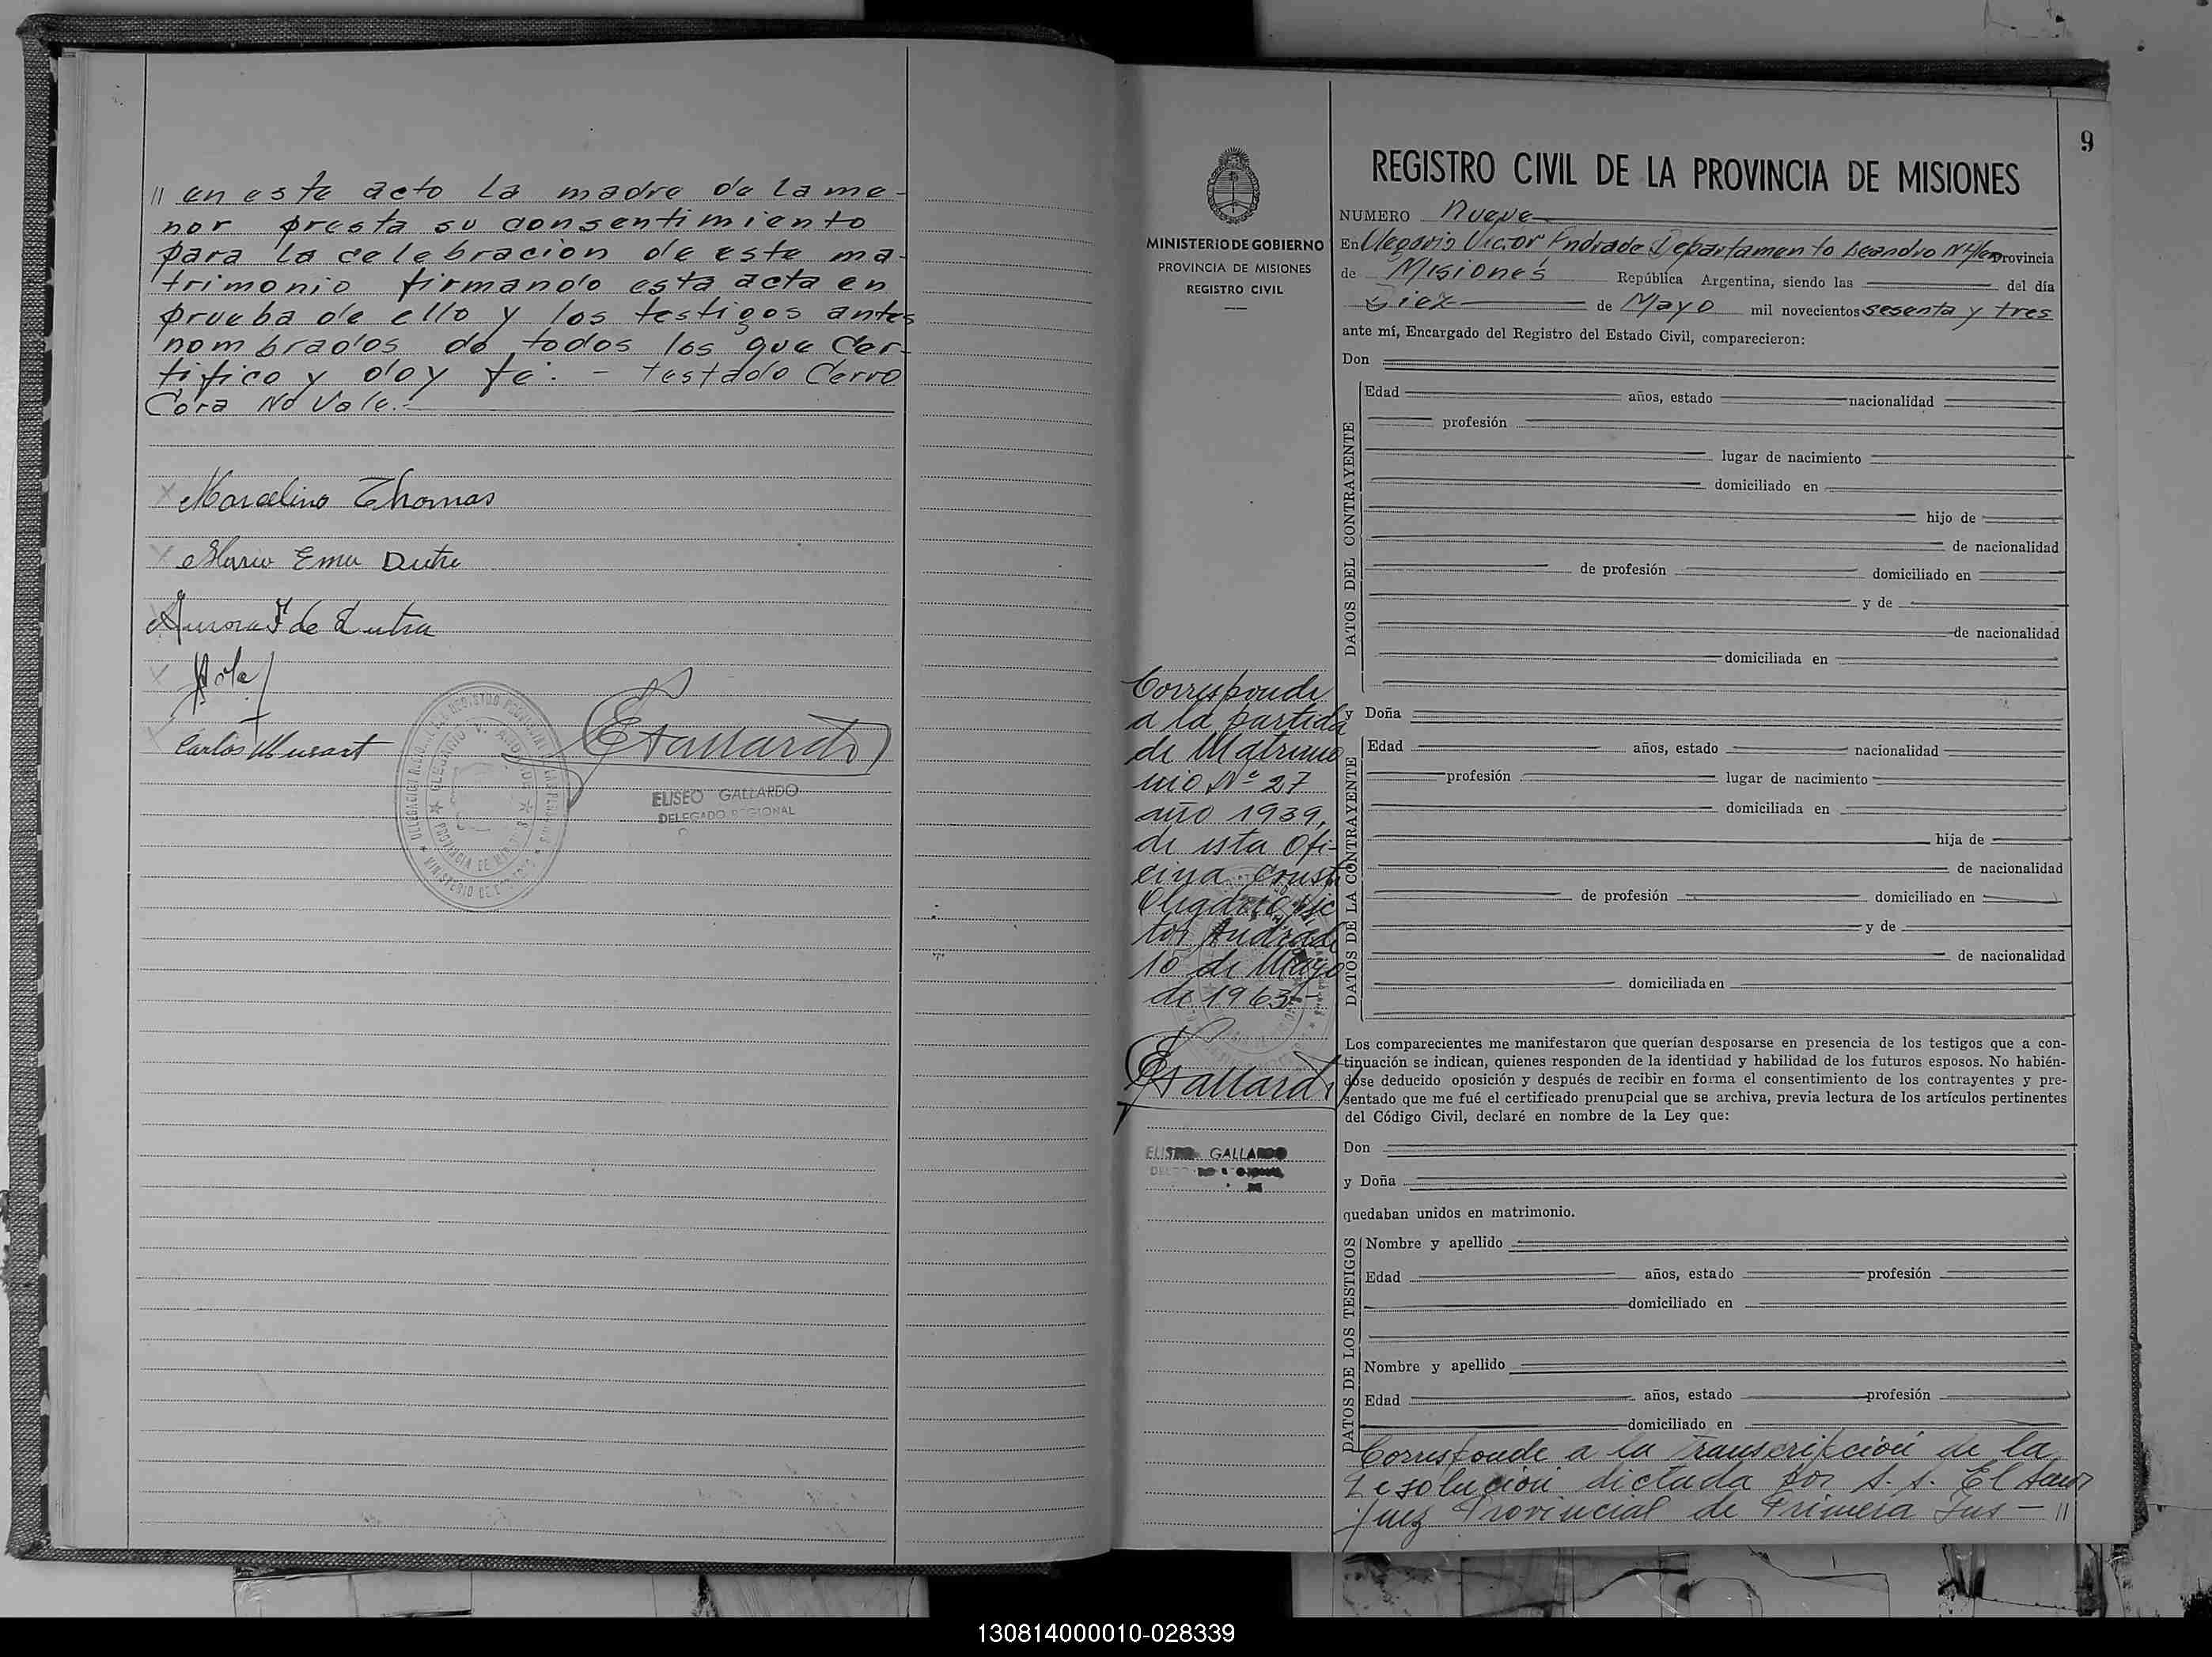 // en este acto la madre de la me-
nor presta su consentimiento
para la celebracion de este ma-
trimonio firmando esta acta en
prueba de ello y los testigos antes
nombrados de todos los que Cer-
tifico y doy fe. - testado Cerro
Cora No Vale.-
Marcelino Thomas
Ema
de Dutra
Carlos
ELISEO GALLARDO
DELEGADO REGIONAL
9
MINISTERIO DE GOBIERNO
PROVINCIA DE MISIONES
REGISTRO CIVIL
Corresponde
a la partida
de Matrimo
nio Nº 27
año 1939,
de esta Ofi-
cina. Conste
Olegario Vic
tor Andrade
10 de Mayo
de 1963.-
EGallardo
ELISEO GALLARDO
REGISTRO CIVIL DE LA PROVINCIA DE MISIONES
NUMERO Nueve
En Olegario Victor Andrade Departamento Leandro N Alem Provincia
de Misiones República Argentina, siendo las del día
Diez de Mayo mil novecientos sesenta y tres
ante mí, Encargado del Registro del Estado Civil, comparecieron:
Don
DATOS DEL CONTRAYENTE
Edad años, estado nacionalidad
profesión
lugar de nacimiento
domiciliado en
hijo de
de nacionalidad
de profesión domiciliado en
y de
de nacionalidad
domiciliada en
y Doña
DATOS DE LA CONTRAYENTE
Edad años, estado nacionalidad
profesión lugar de nacimiento
domiciliada en
hija de
de nacionalidad
de profesión domiciliado en
y de
de nacionalidad
domiciliada en
Los comparecientes me manifestaron que querían desposarse en presencia de los testigos que a con-
tinuación se indican, quienes responden de la identidad y habilidad de los futuros esposos. No habién-
dose deducido oposición y después de recibir en forma el consentimiento de los contrayentes y pre-
sentado que me fué el certificado prenupcial que se archiva, previa lectura de los artículos pertinentes
del Código Civil, declaré en nombre de la Ley que:
Don
y Doña
quedaban unidos en matrimonio.
DATOS DE LOS TESTIGOS
Nombre y apellido
Edad años, estado profesión
domiciliado en
Nombre y apellido
Edad años, estado profesión
domiciliado en
Corresponde a la Transcripción de la
Resolución dictada por S. S. El Señor
Juez Provincial de Primera Ins- //
130814000010-028339